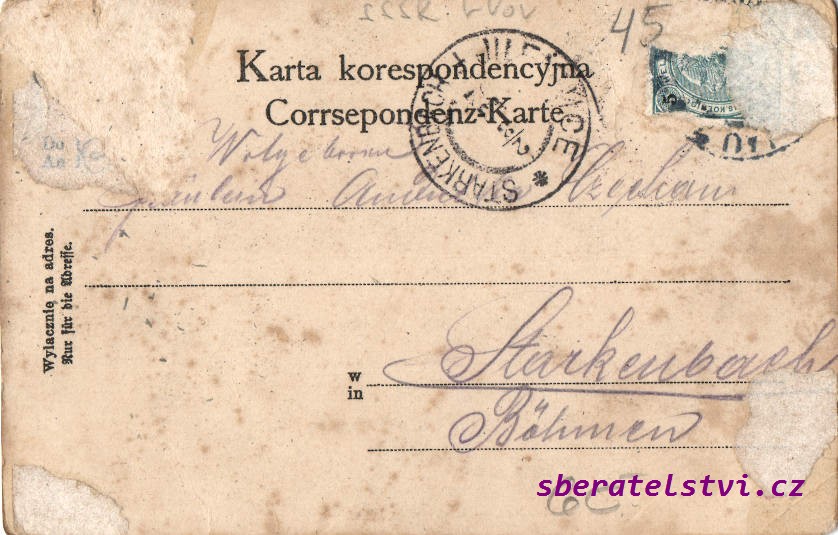 SSSR LVOV
45
Karta korespondencyjna
Corrsepondenz-Karte
STARKENBACH * JILEMNICE *
5
Wolgeboren
Fräulein
Wyłacznię na adres.
Nur für die Adresse.
w
in
Starkenbach
Böhmen
sberatelstvi.cz